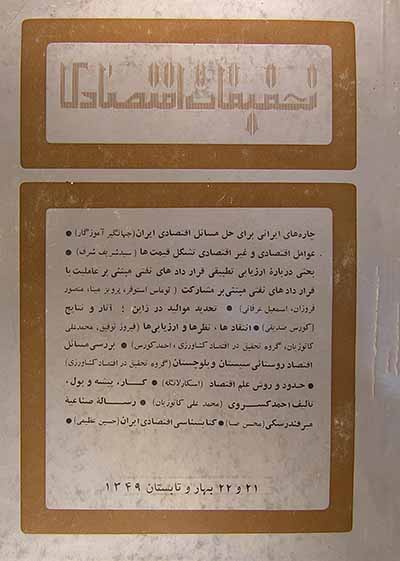 تحقیقات اقتصادی
چاره‌های ایرانی برای حل مسائل اقتصادی ایران (جهانگیر آموزگار) ●
عوامل اقتصادی و غیر اقتصادی تشکل قیمت ها (سیدشریف شرف) ●
بحثی دربارهٔ ارزیابی تطبیقی قرار داد های نفتی مبتنی بر عاملیت با
قرار دادهای نفتی مبتنی بر مشارکت (توماس استوفر، پرویز مینا، منصور
فروزان، اسمعیل عرفانی) ● تحدید موالید در ژاپن : آثار و نتایج
(کورس صدیقی) ● انتقاد ها، نظرها و ارزیابی‌ها (فیروز توفیق، محمدعلی
کاتوزیان، گروه تحقیق در اقتصاد کشاورزی، احمد کورس) ● بررسی مسائل
اقتصاد روستائی سیستان و بلوچستان (گروه تحقیق در اقتصاد کشاورزی)
● حدود و روش علم اقتصاد (اسکار لانگه) ● کار، پیشه و پول،
تالیف احمد کسروی (محمد علی کاتوزیان) ● رسالهٔ صناعیهٔ
میرفندرسکی (محسن صبا) ● کتابشناسی اقتصادی ایران (حسین عظیمی) ●
۲۱ و ۲۲ بهار و تابستان ۱۳۴۹